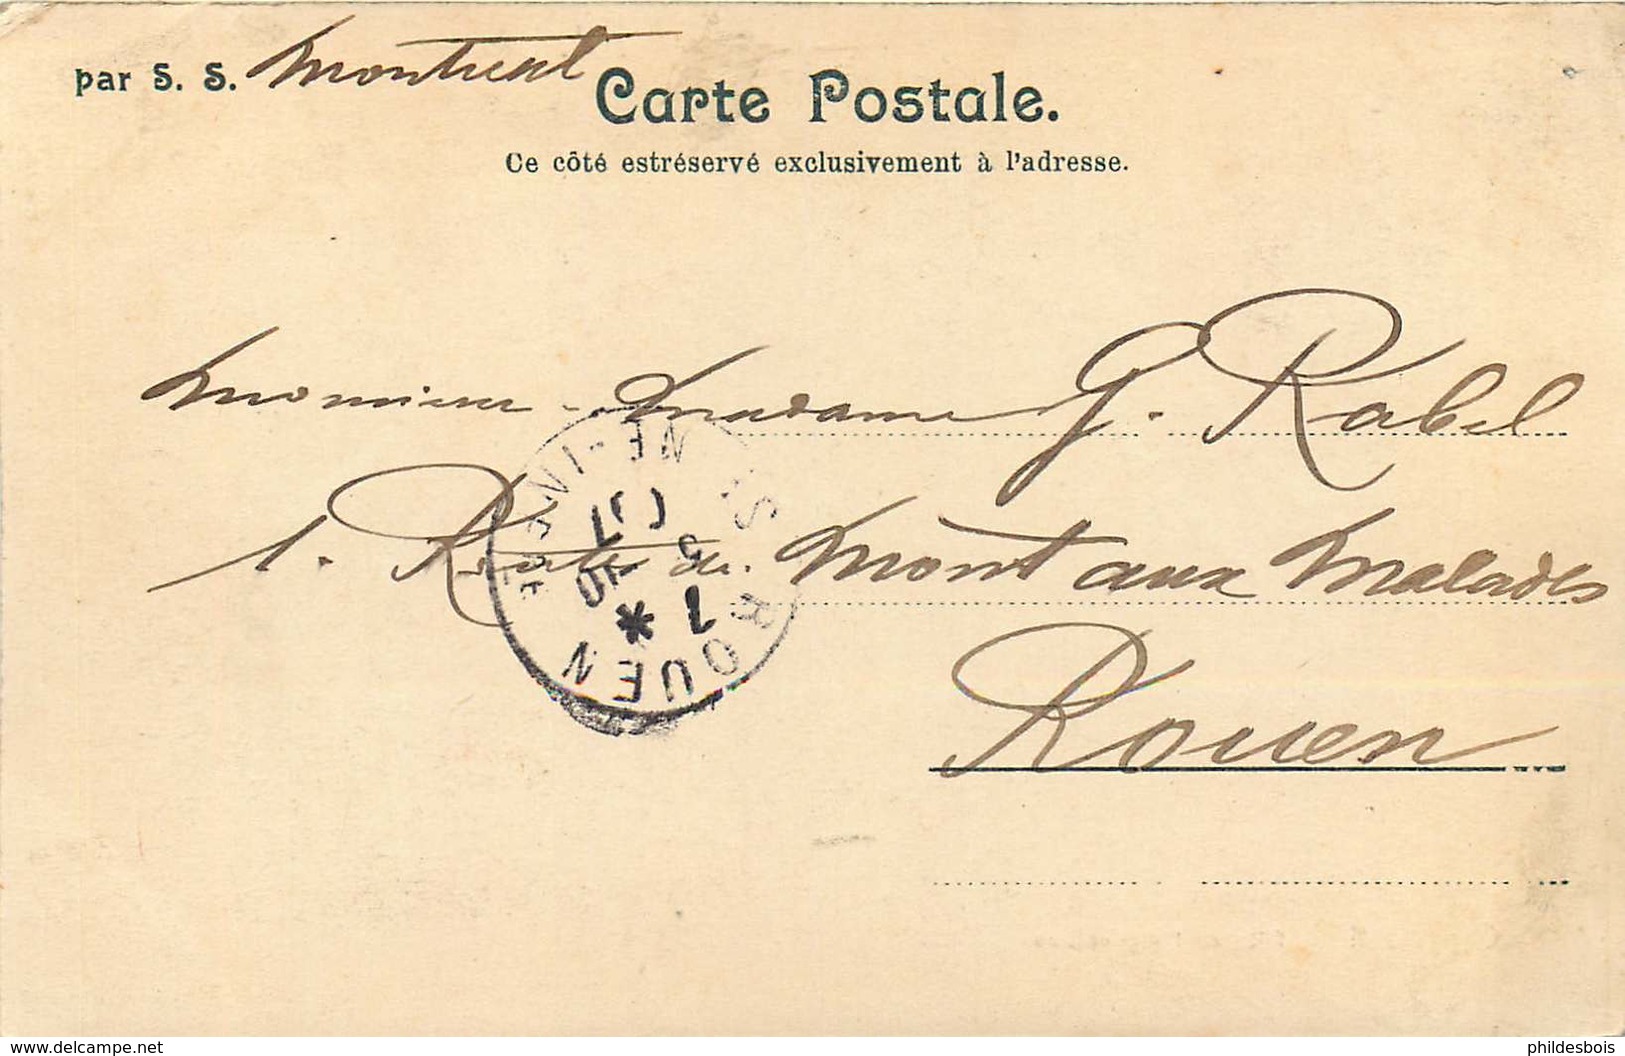 par S. S. Montreal
Carte Postale.
Ce côté estréservé exclusivement à l'adresse.
Monsieur - Madame G. Rabel
1. Route du Mont aux Malades
Rouen
ROUEN
*
SEINE-INFRE
www.delcampe.net
phildesbois